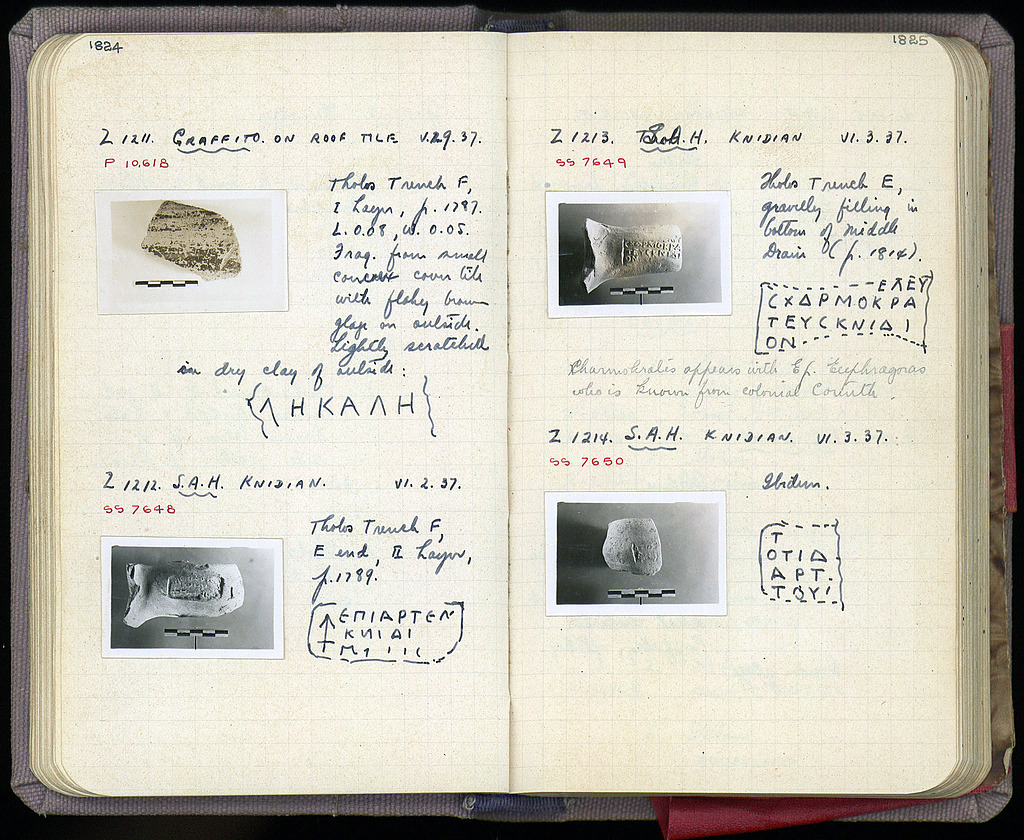 1824
Z 1211. GRAFFITO. ON ROOF TILE V.29.37.
P 10,618
Tholos Trench F,
I Layer, p. 1787.
L. 0.08, W. 0.05.
Frag. from small
cover tile
with flaky brown
glaze on outside.
Lightly scratched
in dry clay of outside:
ΛΗΚΑΛΗ
Z 1212. S.A.H. KNIDIAN. VI.2.37.
SS 7648
Tholos Trench F,
E end, II Layer,
p. 1789.
ΕΠΙΑΡΤΕΝ
ΚΝΙΔΙ
1825
Z 1213. S.A.H. KNIDIAN VI.3.37.
SS 7649
Tholos Trench E,
gravelly filling in
bottom of Middle
Drain (p. 1814).
ΕΠΕΥ
CΧΔΡΜΟΚΡΑ
ΤΕΥCΚΝΙΔΙ
ΟΝ
Charmokrates appears with Ep. Euphragoras
who is known from colonial Corinth.
Z 1214. S.A.H. KNIDIAN. VI.3.37.
SS 7650
Ibidem.
Τ
ΟΤΙΔ
ΑΡΤ.
ΤΟΥΙ